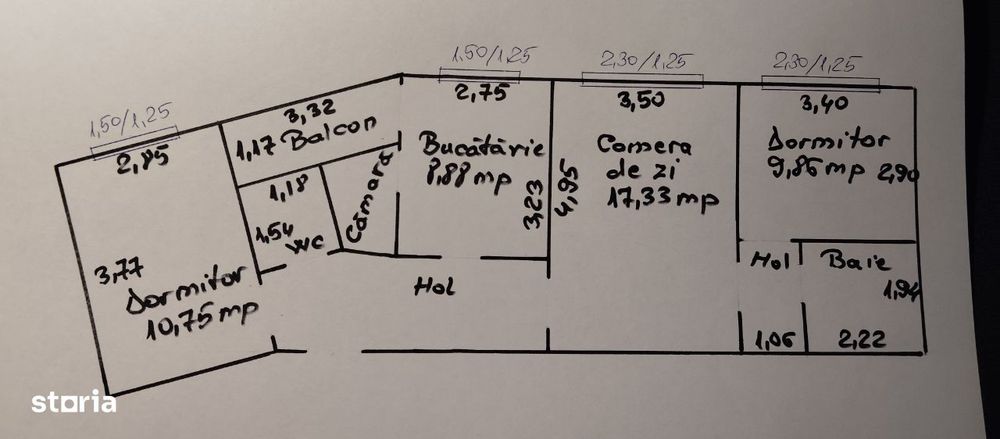 1,50/1,25
2,85
3,77
Dormitor
10,75mp
3,32
1,17 Balcon
1,18
1,54
WC
Cămara
1,50/1,25
2,75
Bucătărie
8,88 mp
3,23
Hol
2,30/1,25
3,50
4,95
Camera
de zi
17,33mp
2,30/1,25
3,40
Dormitor
9,86mp 2,90
Hol
1,06
Baie
1,94
2,22
storia